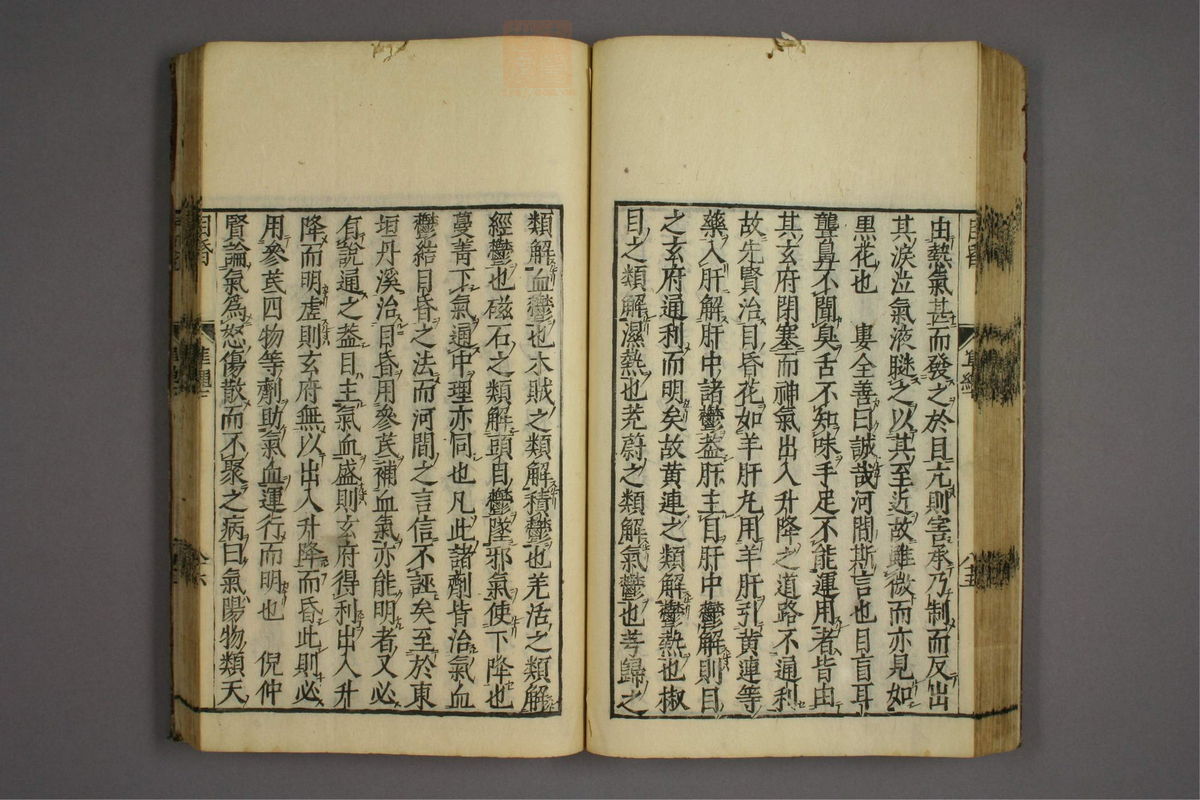 由熱氣甚而發之於目亢則害承乃制而反出
其淚泣氣液䁾之以其至近故雖微而亦見如
黒花也　婁全善曰誠哉河間斯言也目盲耳
聾鼻不聞臭舌不知味手足不能運用者皆由
其玄府閉塞而神氣出入升降之道路不通利
故先賢治目昏花如羊肝丸用羊肝引黄連等
藥入肝解肝中諸鬱盖肝主目肝中鬱解則目
之玄府通利而明矣故黄連之類解鬱熱也椒
目之類解濕熱也茺蔚之類解氣鬱也芎歸之
類解血鬱也木賊之類解積鬱也羌活之類解
經鬱也磁石之類解頭目鬱墜邪氣使下降也
蔓菁下氣通中理亦同也凡此諸劑皆治氣血
鬱結目昏之法而河間之言信不誣矣至於東
垣丹溪治目昏用參芪補血氣亦能明者又必
有說通之盖目主氣血盛則玄府得利出入升
降而明虚則玄府無以出入升降而昏此則必
用參芪四物等劑助氣血運行而明也　倪仲
賢論氣為怒傷散而不聚之病曰氣陽物類天
目昏